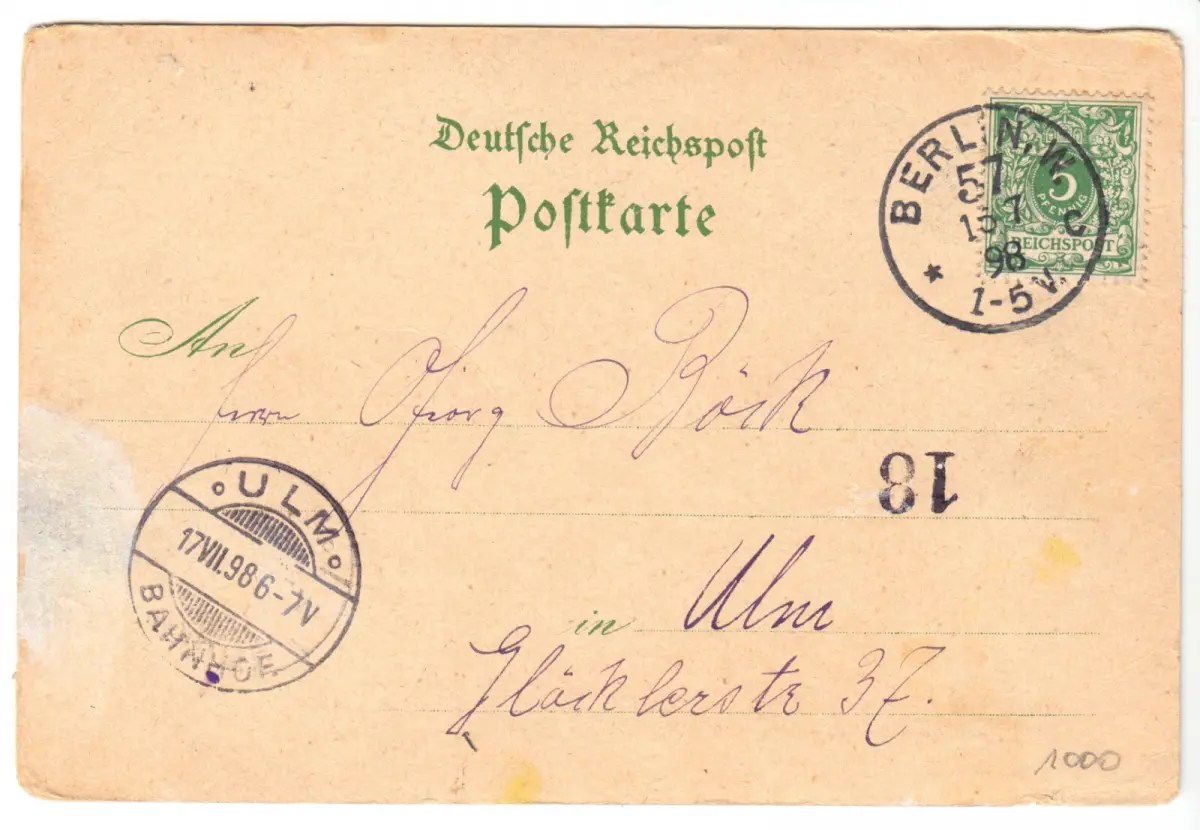 Deutsche Reichspost
Postkarte
BERLIN, W.
57
C
98
1-5 V.
5
PFENNIG
REICHSPOST
An
Herrn Georg Böck
18
ULM
17 VII. 98 6-7 V
BAHNHOF
in Ulm
Glöcklerstr 37.
1000